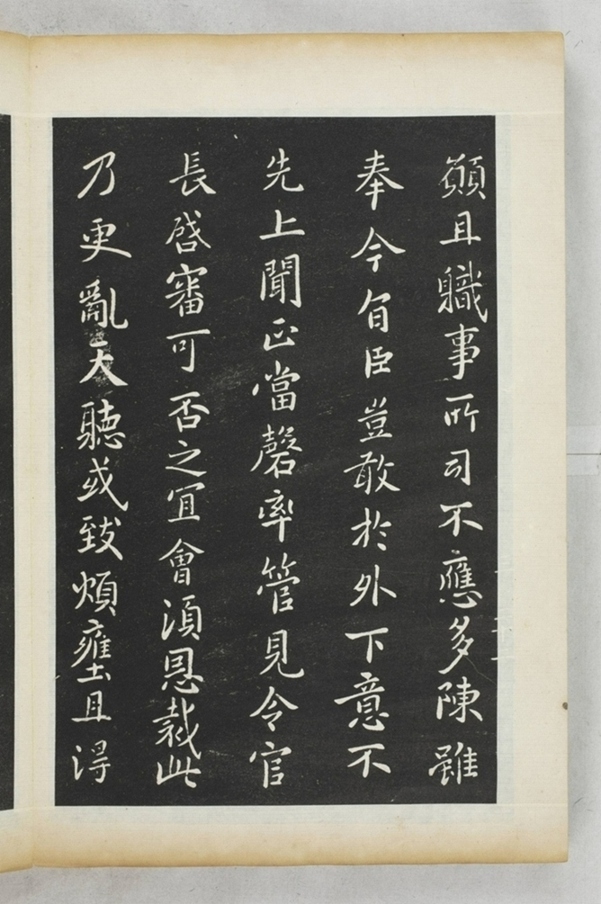 顧且職事所司不應多陳雖
奉今旨臣豈敢於外下意不
先上聞正當罄率管見令官
長啓審可否之宜會須恩裁此
乃更亂天聽或致煩壅且得